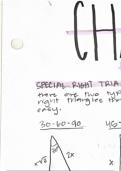 CHA
SPECIAL RIGHT TRIA
there are two typ
right triangles tha
easy.
30-60-90 45-
x√3 30° 2x x